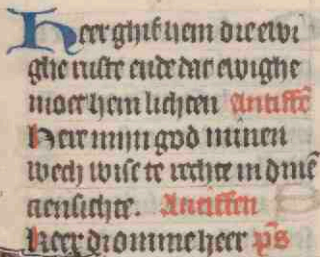 Heer ghif hem die ewi
ghe ruste ende dat ewighe
moet hem lichten Antiffē
Here mijn god minen
wech wise te rechte in dinē
aensichte. Antiffen
Heer di omme heer p̄s